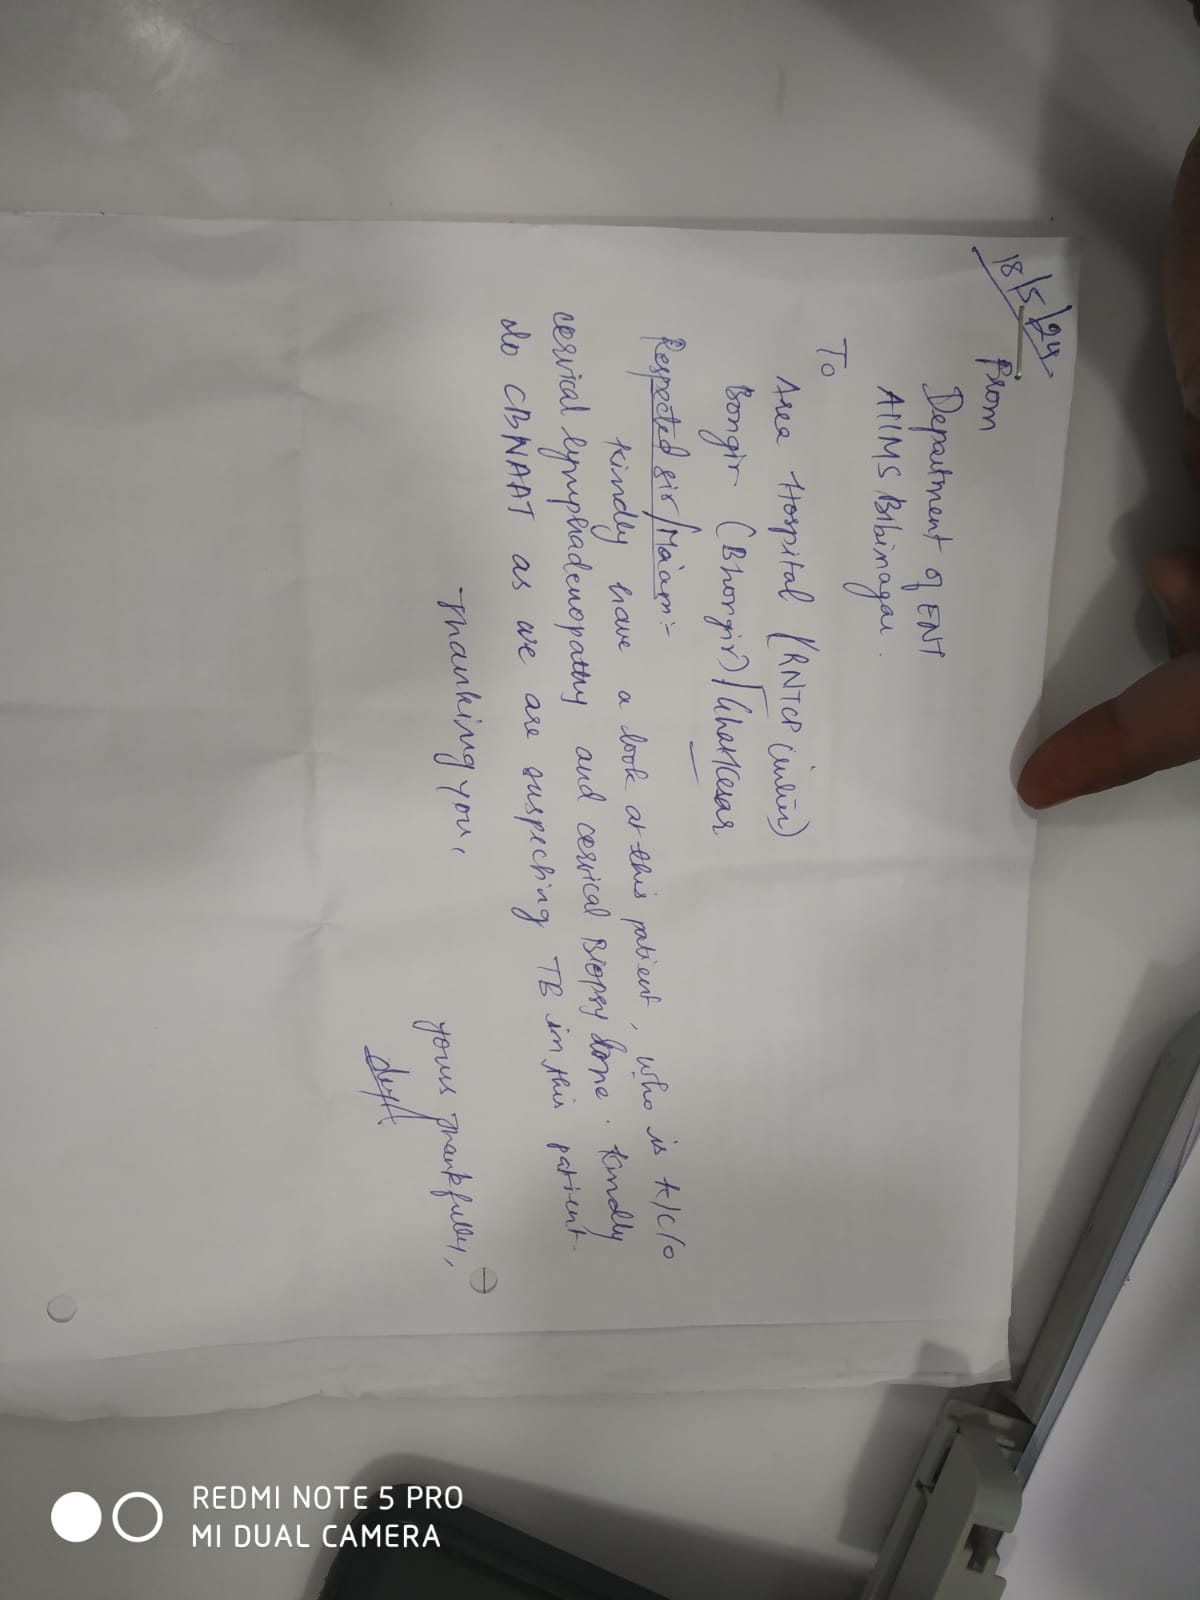 18/5/24
From
Department of ENT
AIIMS Bibinagar.
To
Area Hospital (RNTCP Center)
Bongir (Bhongir) / Ghatkesar
Respected sir/Ma'am:-
kindly have a look at this patient, who is k/c/o
cervical lymphadenopathy and cervical Biopsy done. kindly
do CBNAAT as we are suspecting TB in this patient.
Thanking you,
yours Thankfully,
REDMI NOTE 5 PRO
MI DUAL CAMERA